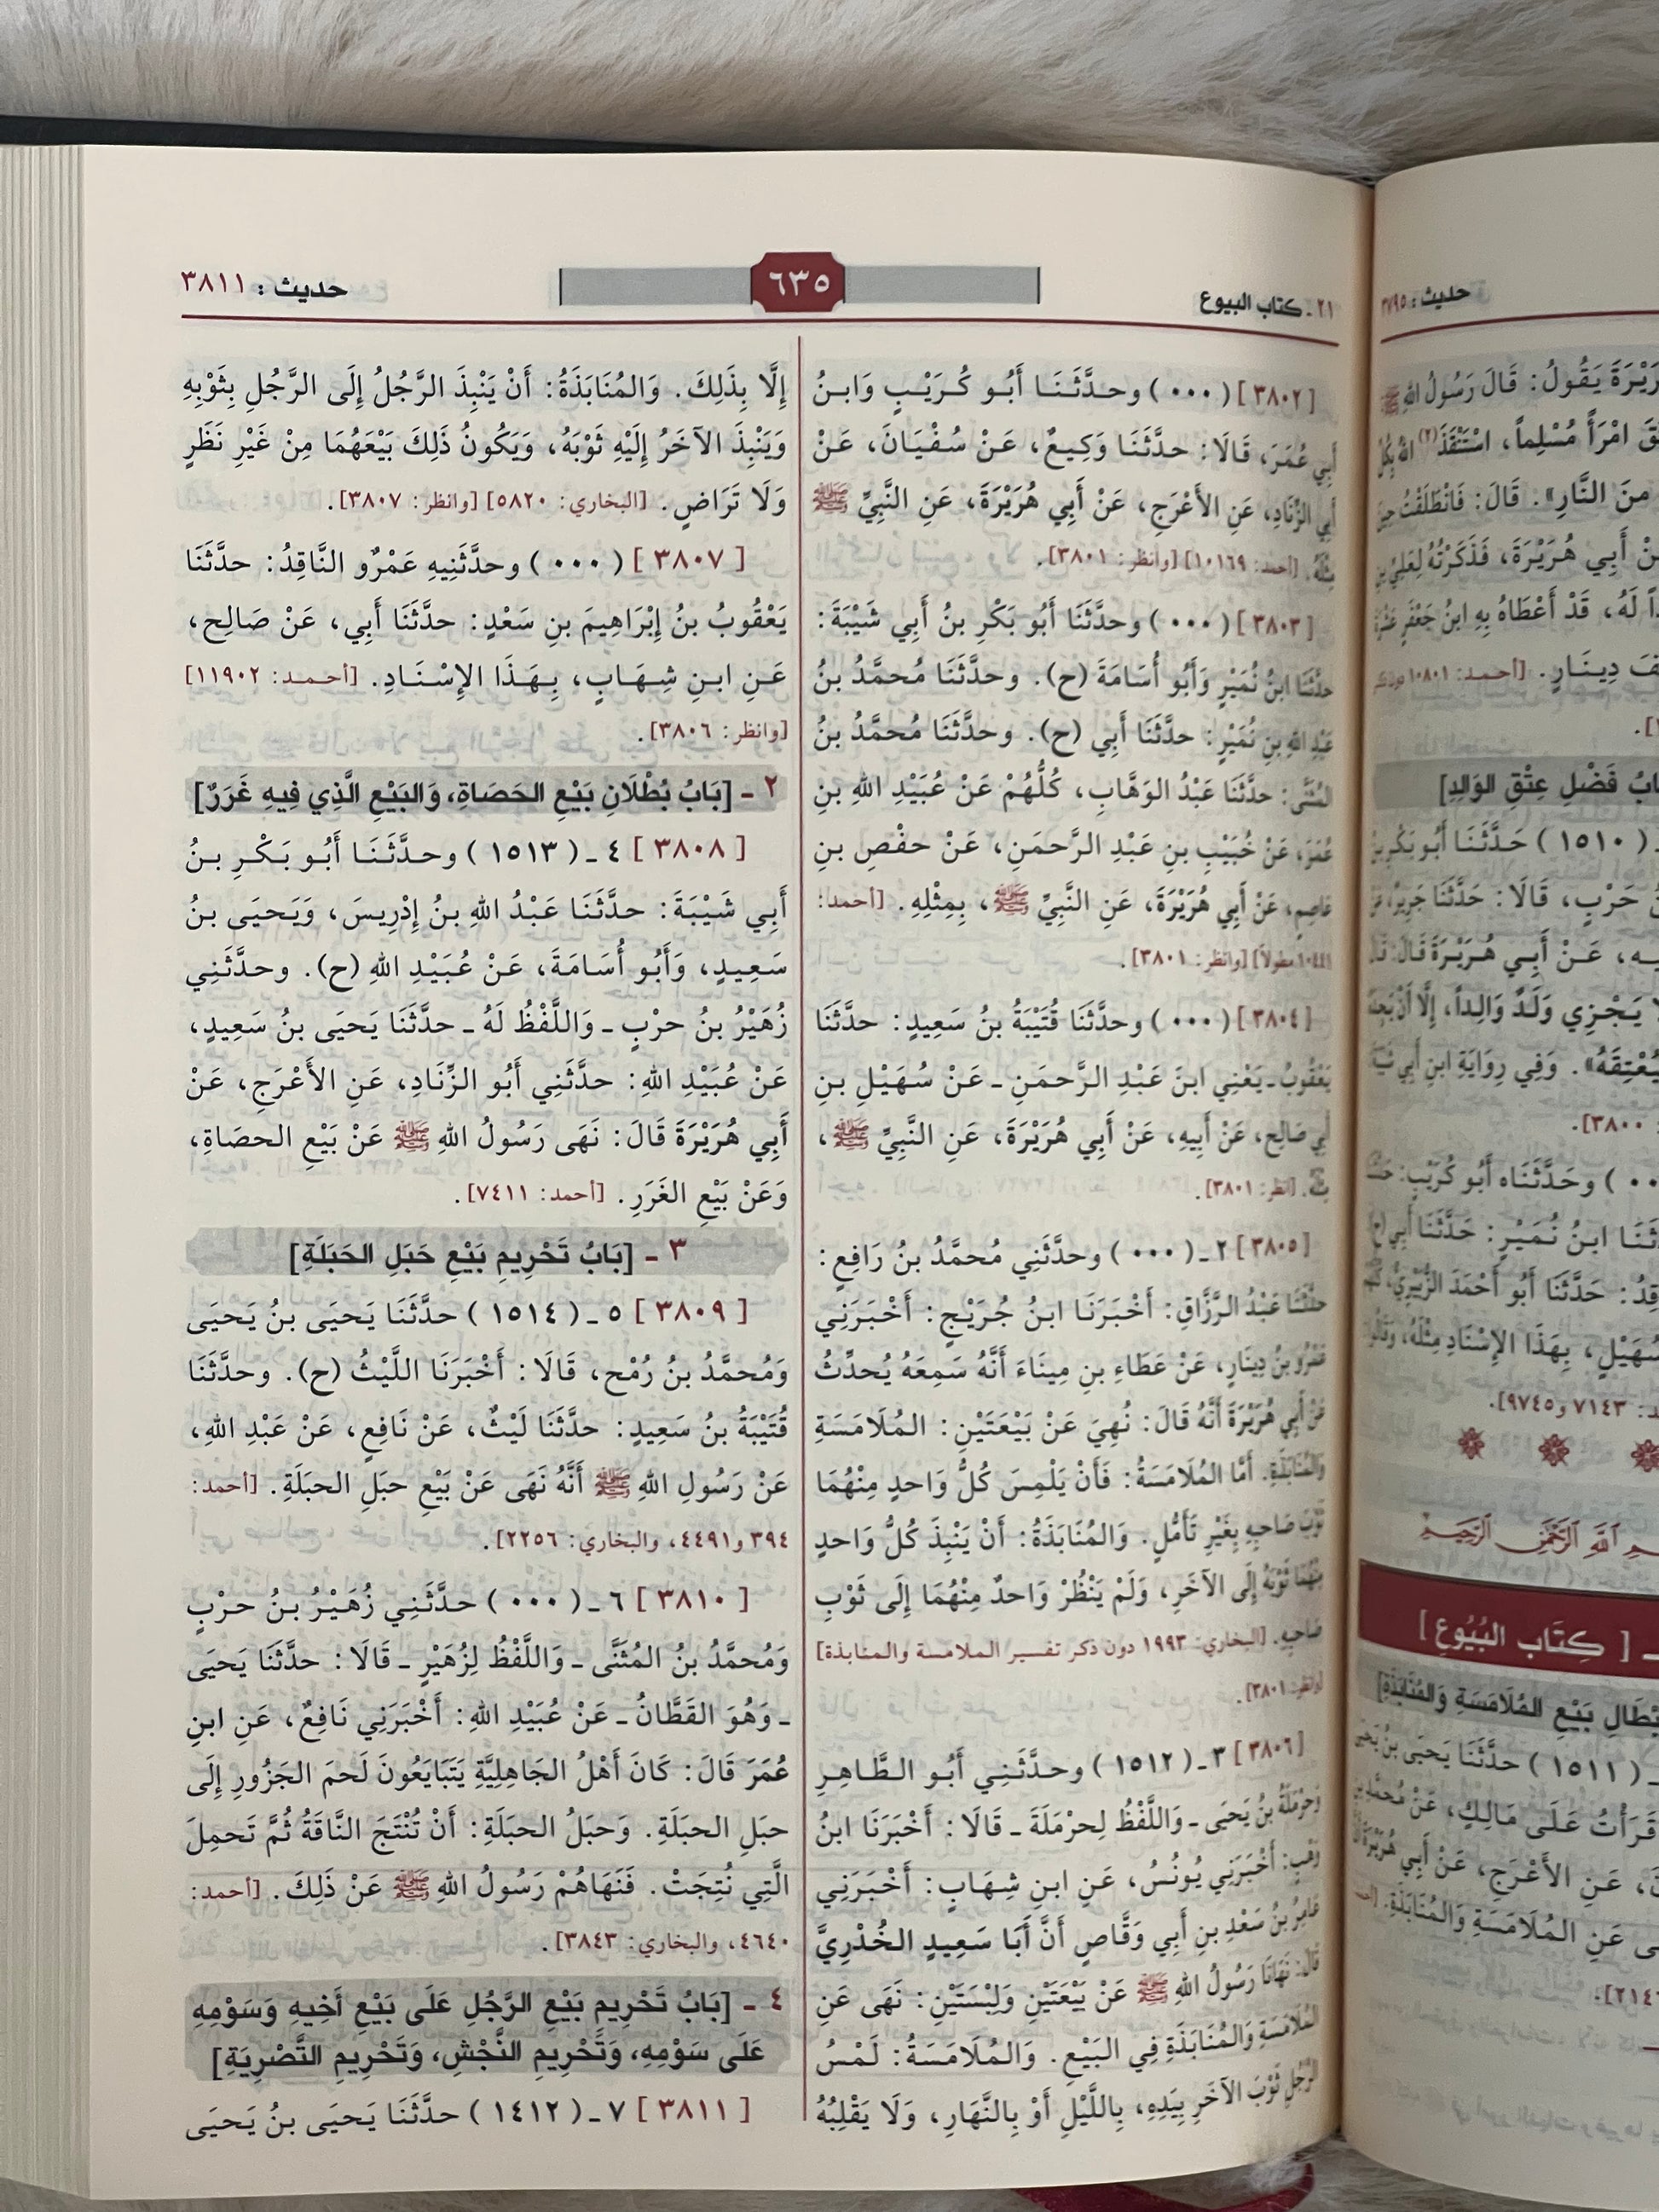 ٢١ ـ كتاب البيوع
٦٣٥
حديث : ٣٨١١
[٣٨٠٢] (٠٠٠) وحدَّثَنَا أَبُو كُرَيْبٍ وَابنُ
أَبِي عُمَرَ، قَالَا: حدَّثَنَا وَكِيعٌ، عَنْ سُفْيَانَ، عَنْ
أَبِي الزِّنَادِ، عَنِ الأَعْرَجِ، عَنْ أَبِي هُرَيْرَةَ، عَنِ النَّبِيِّ ﷺ
مِثْلَهُ. [أحمد: ١٠١٦٩] [وانظر: ٣٨٠١].
[٣٨٠٣] (٠٠٠) وحدَّثَنَا أَبُو بَكْرِ بنُ أَبِي شَيْبَةَ:
حدَّثَنَا ابنُ نُمَيْرٍ وَأَبُو أُسَامَةَ (ح). وحدَّثَنَا مُحمَّدُ بنُ
عَبْدِ اللهِ بنِ نُمَيْرٍ: حدَّثَنَا أَبِي (ح). وحدَّثَنَا مُحمَّدُ بنُ
المُثَنَّى: حدَّثَنَا عَبْدُ الوَهَّابِ، كُلُّهُمْ عَنْ عُبَيْدِ اللهِ بنِ
عُمَرَ، عَنْ خُبَيْبِ بنِ عَبْدِ الرَّحمَنِ، عَنْ حفْصِ بنِ
عَاصِمٍ، عَنْ أَبِي هُرَيْرَةَ، عَنِ النَّبِيِّ ﷺ، بِمِثْلِهِ. [أحمد:
١٠٤٤١ مطولاً] [وانظر: ٣٨٠١].
[٣٨٠٤] (٠٠٠) وحدَّثَنَا قُتَيْبَةُ بنُ سَعِيدٍ: حدَّثَنَا
يَعْقُوبُ ـ يَعْنِي ابنَ عَبْدِ الرَّحمَنِ ـ عَنْ سُهَيْلِ بنِ
أَبِي صَالِحٍ، عَنْ أَبِيهِ، عَنْ أَبِي هُرَيْرَةَ، عَنِ النَّبِيِّ ﷺ،
مِثْلَهُ. [انظر: ٣٨٠١].
[٣٨٠٥] ٢ ـ (٠٠٠) وحدَّثَنِي مُحمَّدُ بنُ رَافِعٍ:
حدَّثَنَا عَبْدُ الرَّزَّاقِ: أَخْبَرَنَا ابنُ جُرَيْجٍ: أَخْبَرَنِي
عَمْرُو بنُ دِينَارٍ، عَنْ عَطَاءِ بنِ مِينَاءَ أَنَّهُ سَمِعَهُ يُحدِّثُ
عَنْ أَبِي هُرَيْرَةَ أَنَّهُ قَالَ: نُهِيَ عَنْ بَيْعَتَيْنِ: المُلَامَسَةِ
وَالمُنَابَذَةِ. أَمَّا المُلَامَسَةُ: فَأَنْ يَلْمِسَ كُلُّ وَاحدٍ مِنْهُمَا
ثَوْبَ صَاحِبِهِ بِغَيْرِ تَأَمُّلٍ. وَالمُنَابَذَةُ: أَنْ يَنْبِذَ كُلُّ وَاحدٍ
مِنْهُمَا ثَوْبَهُ إِلَى الآخَرِ، وَلَمْ يَنْظُرْ وَاحدٌ مِنْهُمَا إِلَى ثَوْبِ
صَاحِبِهِ. [البخاري: ١٩٩٣ دون ذكر تفسير الملامسة والمنابذة]
[وانظر: ٣٨٠١].
[٣٨٠٦] ٣ ـ (١٥١٢) وحدَّثَنِي أَبُو الطَّاهِرِ
وَحرْمَلَةُ بنُ يَحيَى ـ وَاللَّفْظُ لِحرْمَلَةَ ـ قَالَا: أَخْبَرَنَا ابنُ
وَهْبٍ: أَخْبَرَنِي يُونُسُ، عَنِ ابنِ شِهَابٍ: أَخْبَرَنِي
عَامِرُ بنُ سَعْدِ بنِ أَبِي وَقَّاصٍ أَنَّ أَبَا سَعِيدٍ الخُدْرِيَّ
قَالَ: نَهَانَا رَسُولُ اللهِ ﷺ عَنْ بَيْعَتَيْنِ وَلِبْسَتَيْنِ: نَهَى عَنِ
المُلَامَسَةِ وَالمُنَابَذَةِ فِي البَيْعِ. وَالمُلَامَسَةُ: لَمْسُ
الرَّجُلِ ثَوْبَ الآخَرِ بِيَدِهِ، بِاللَّيْلِ أَوْ بِالنَّهَارِ، وَلَا يَقْلِبُهُ
إِلَّا بِذَلِكَ. وَالمُنَابَذَةُ: أَنْ يَنْبِذَ الرَّجُلُ إِلَى الرَّجُلِ بِثَوْبِهِ
وَيَنْبِذَ الآخَرُ إِلَيْهِ ثَوْبَهُ، وَيَكُونُ ذَلِكَ بَيْعَهُمَا مِنْ غَيْرِ نَظَرٍ
وَلَا تَرَاضٍ. [البخاري: ٥٨٢٠] [وانظر: ٣٨٠٧].
[٣٨٠٧] (٠٠٠) وحدَّثَنِيهِ عَمْرٌو النَّاقِدُ: حدَّثَنَا
يَعْقُوبُ بنُ إِبْرَاهِيمَ بنِ سَعْدٍ: حدَّثَنَا أَبِي، عَنْ صَالِحٍ،
عَنِ ابنِ شِهَابٍ، بِهَذَا الإِسْنَادِ. [أحمد: ١١٩٠٢]
[وانظر: ٣٨٠٦].
٢ ـ [بَابُ بُطْلَانِ بَيْعِ الحَصَاةِ، وَالبَيْعِ الَّذِي فِيهِ غَرَرٌ]
[٣٨٠٨] ٤ ـ (١٥١٣) وحدَّثَنَا أَبُو بَكْرِ بنُ
أَبِي شَيْبَةَ: حدَّثَنَا عَبْدُ اللهِ بنُ إِدْرِيسَ، وَيَحيَى بنُ
سَعِيدٍ، وَأَبُو أُسَامَةَ، عَنْ عُبَيْدِ اللهِ (ح). وحدَّثَنِي
زُهَيْرُ بنُ حرْبٍ ـ وَاللَّفْظُ لَهُ ـ حدَّثَنَا يَحيَى بنُ سَعِيدٍ،
عَنْ عُبَيْدِ اللهِ: حدَّثَنِي أَبُو الزِّنَادِ، عَنِ الأَعْرَجِ، عَنْ
أَبِي هُرَيْرَةَ قَالَ: نَهَى رَسُولُ اللهِ ﷺ عَنْ بَيْعِ الحصَاةِ،
وَعَنْ بَيْعِ الغَرَرِ. [أحمد: ٧٤١١].
٣ ـ [بَابُ تَحْرِيمِ بَيْعِ حَبَلِ الحَبَلَةِ]
[٣٨٠٩] ٥ ـ (١٥١٤) حدَّثَنَا يَحيَى بنُ يَحيَى
وَمُحمَّدُ بنُ رُمْحٍ، قَالَا: أَخْبَرَنَا اللَّيْثُ (ح). وحدَّثَنَا
قُتَيْبَةُ بنُ سَعِيدٍ: حدَّثَنَا لَيْثٌ، عَنْ نَافِعٍ، عَنْ عَبْدِ اللهِ،
عَنْ رَسُولِ اللهِ ﷺ أَنَّهُ نَهَى عَنْ بَيْعِ حبَلِ الحبَلَةِ. [أحمد:
٣٩٤ و٤٤٩١، والبخاري: ٢٢٥٦].
[٣٨١٠] ٦ ـ (٠٠٠) حدَّثَنِي زُهَيْرُ بنُ حرْبٍ
وَمُحمَّدُ بنُ المُثَنَّى ـ وَاللَّفْظُ لِزُهَيْرٍ ـ قَالَا: حدَّثَنَا يَحيَى
ـ وَهُوَ القَطَّانُ ـ عَنْ عُبَيْدِ اللهِ: أَخْبَرَنِي نَافِعٌ، عَنِ ابنِ
عُمَرَ قَالَ: كَانَ أَهْلُ الجَاهِلِيَّةِ يَتَبَايَعُونَ لَحمَ الجَزُورِ إِلَى
حبَلِ الحبَلَةِ. وَحبَلُ الحبَلَةِ: أَنْ تُنْتَجَ النَّاقَةُ ثُمَّ تَحمِلَ
الَّتِي نُتِجَتْ. فَنَهَاهُمْ رَسُولُ اللهِ ﷺ عَنْ ذَلِكَ. [أحمد:
٤٦٤٠، والبخاري: ٣٨٤٣].
٤ ـ [بَابُ تَحْرِيمِ بَيْعِ الرَّجُلِ عَلَى بَيْعِ أَخِيهِ وَسَوْمِهِ
عَلَى سَوْمِهِ، وَتَحْرِيمِ النَّجْشِ، وَتَحْرِيمِ التَّصْرِيَةِ]
[٣٨١١] ٧ ـ (١٤١٢) حدَّثَنَا يَحيَى بنُ يَحيَى